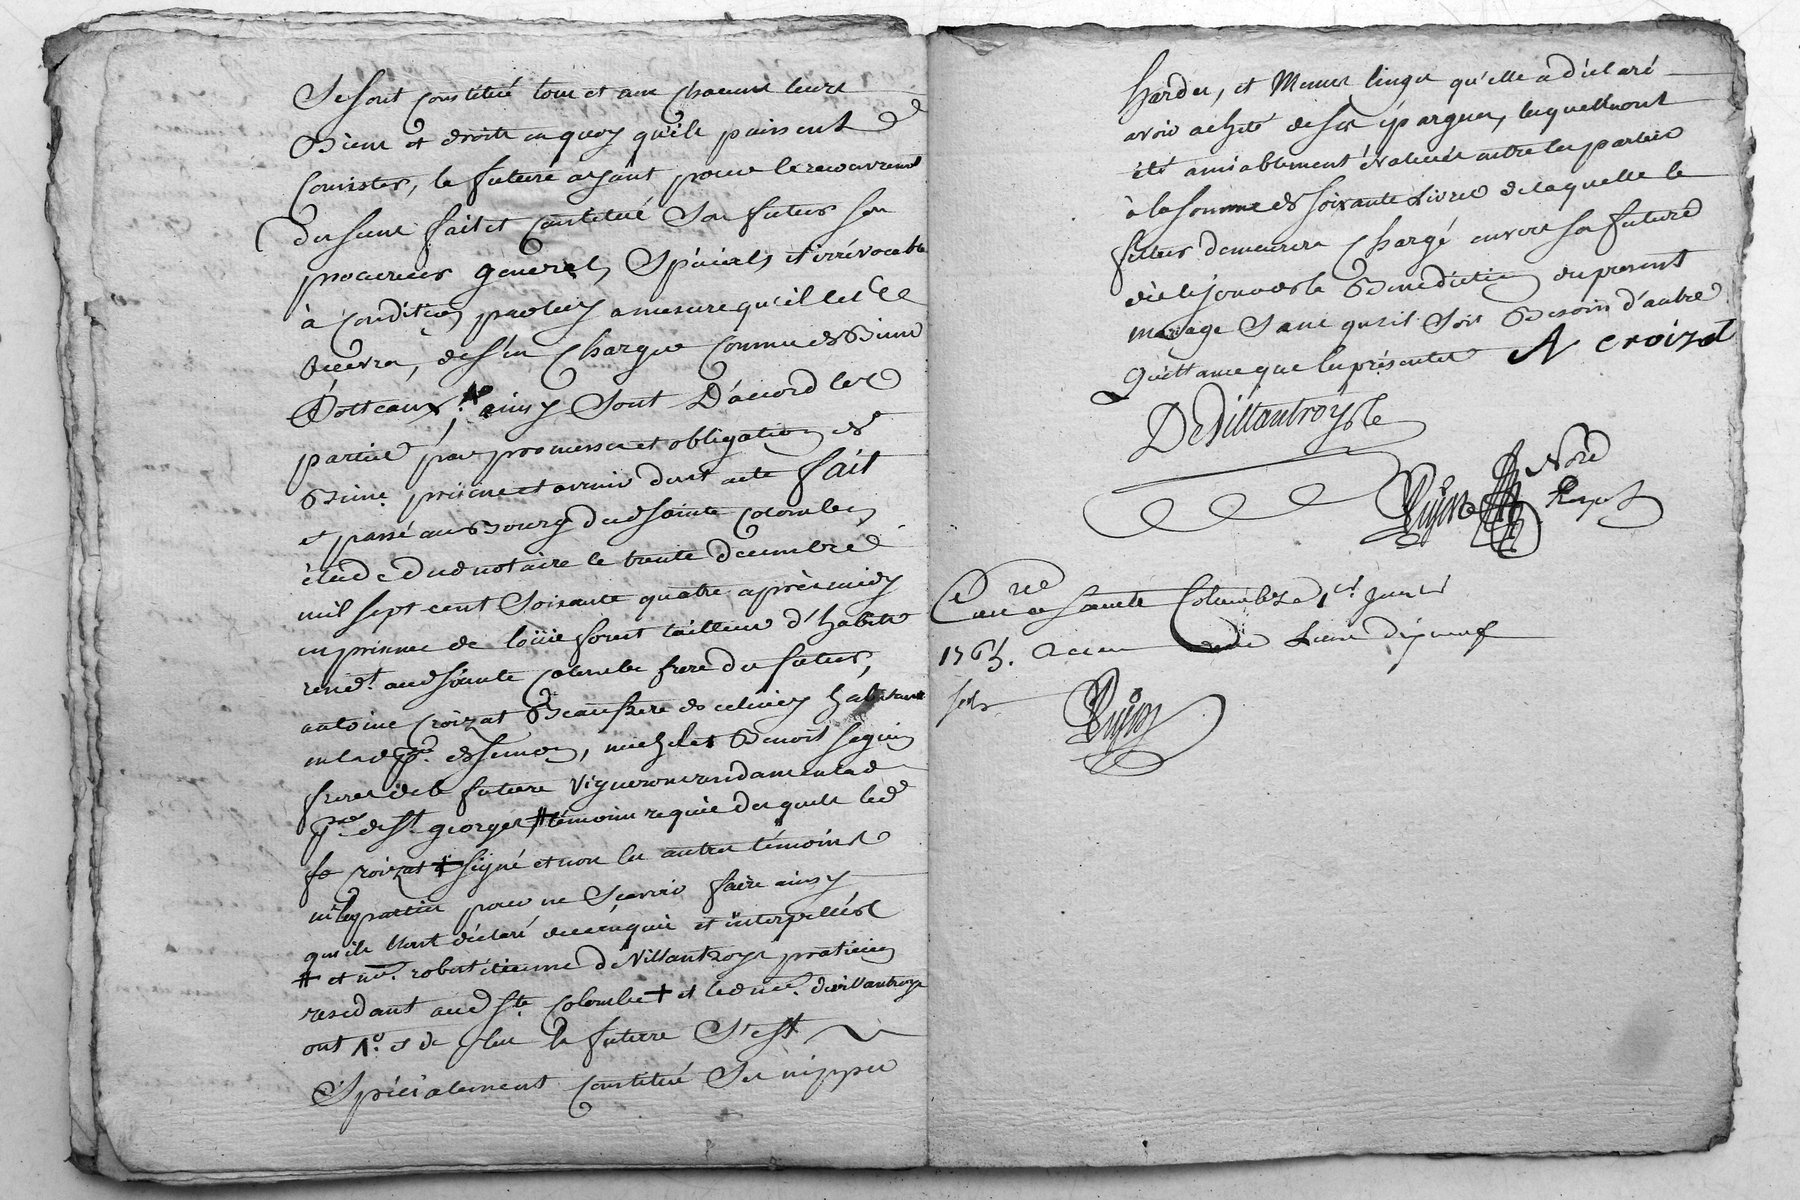 Se sont constitué tous et un chacuns leurs
Biens et droits en quoy qu'ils puissent
Consister, la future ayant pour le recouvremt
des siens fait et constitué Son futur son
procureur general, Spécial, et irrévocable
à condition par luy a mesure qu'il les
recevra, de s'en Charger Comme de Biens
Dottaux, ainsy Sont D'accord les
parties par promesses et obligation de
Biens, présens et avenir dont acte fait
et passé au Bourg dud sainte Colombe,
étude dud notaire le trente decembre
mil sept cent Soixante quatre après midy
en présence de loüis forest tailleur d'habits
resid.t aud sainte Colombe frere du futur,
antoine Croizat Beaufrere de celuicy habitant
en lad p.sse de Semon, michel et Benoit Seguin
freres de la future Vignerons residans en lad
p.sse de St. georges # témoins requis des quels led
Croizat + signé et non les autres témoins
ni les parties pour ne Scavoir faire ainsy
qu'ils l'ont déclaré de ce enquis et interpellés
# et m.e robert étienne deVillantroys praticien
residant aud Ste. Colombe + et led m.e devillantroys
ont 1.° et de plus la future S'est
Spécialement Constitué Ses nippes
hardes, et Menus linges qu'elle a déclaré
avoir acheté de ses épargnes, lesquels ont
été amiablement évalués entre les parties
à la somme de soixante Livres de laquelle le
futur demeurera Chargé envers sa future
dès le jour de la Bénédiction du present
mariage Sans qu'il Soit Besoin d'autre
Quittance que les présentes A croizat
DeVillantroys
Nore
Royal
Con.lé a Sainte Colombe le 1er Janvier
1765. Recu Livre dixneuf
sols